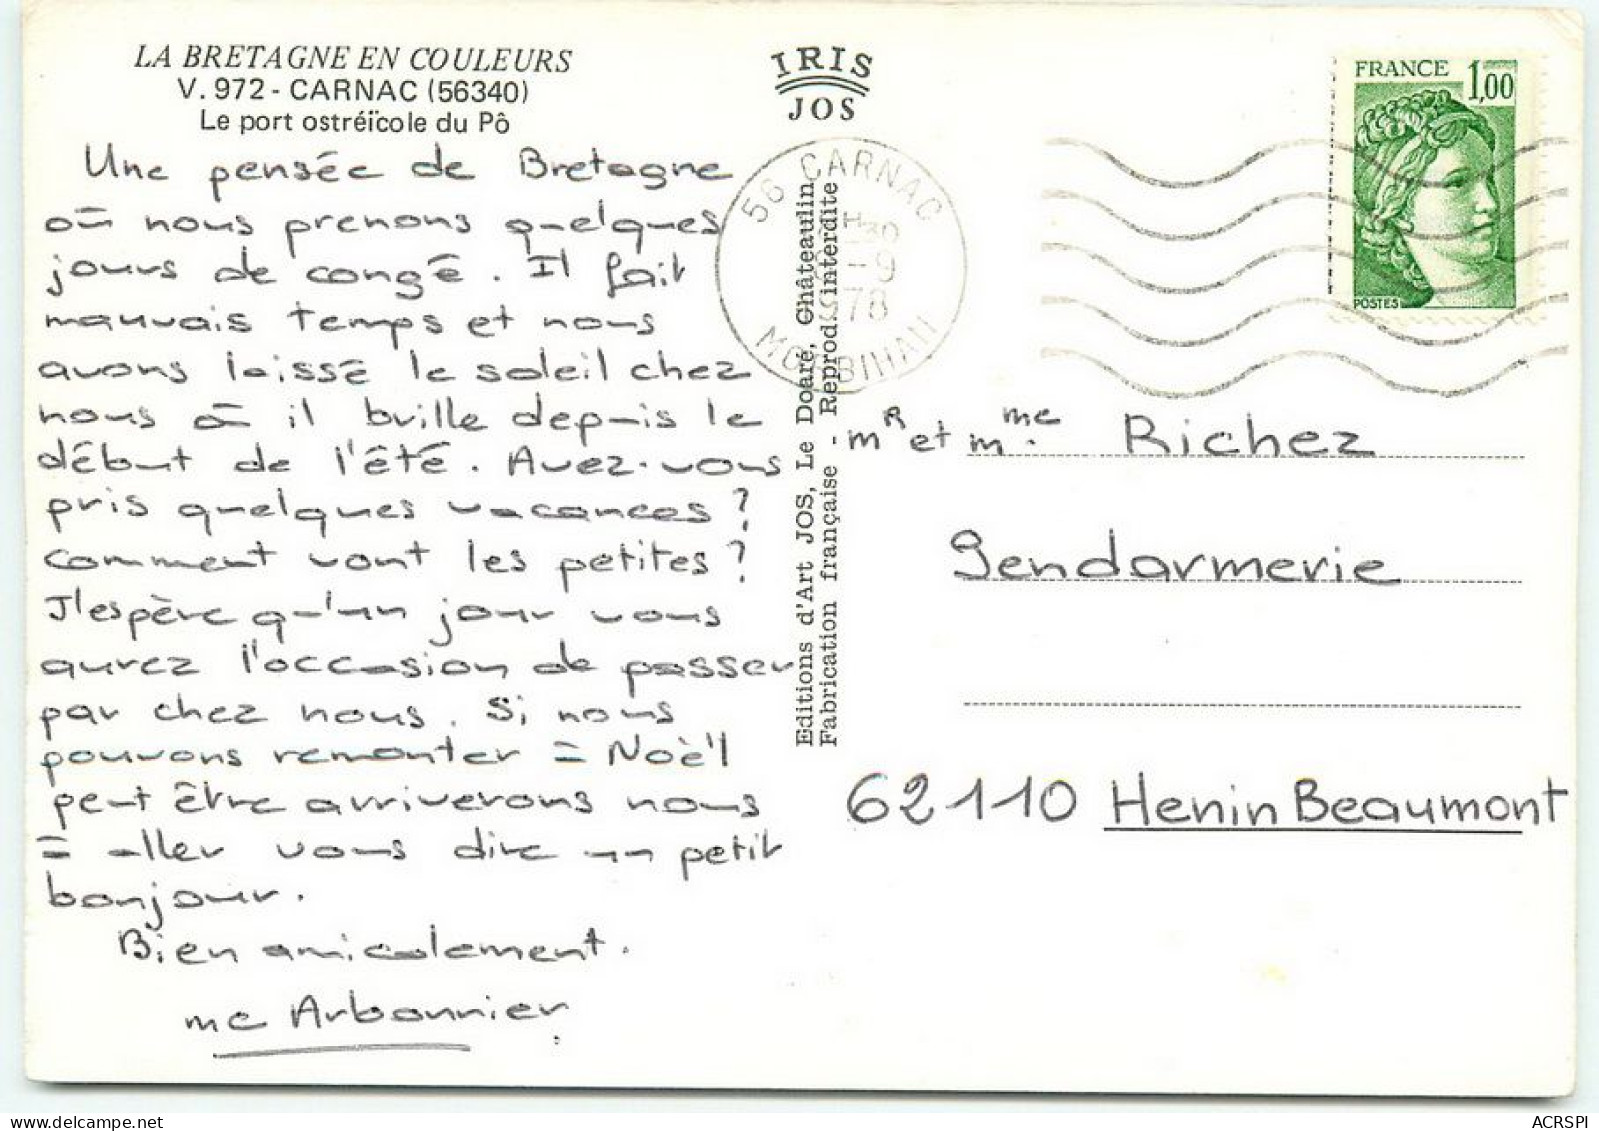 LA BRETAGNE EN COULEURS
V. 972 - CARNAC (56340)
Le port ostréïcole du Pô
Une pensée de Bretagne
où nous prenons quelques
jours de congé. Il fait
mauvais temps et nous
avons laissé le soleil chez
nous où il brille depuis le
début de l'été. Avez-vous
pris quelques vacances ?
Comment vont les petites ?
J'espère qu'un jour vous
aurez l'occasion de passer
par chez nous. Si nous
pouvons remonter à Noë'l
peut être arriverons nous
à aller vous dire un petit
bonjour.
Bien amicalement.
me Arbonnier.
IRIS
JOS
Editions d'Art JOS, Le Doaré, Châteaulin
Fabrication française - Reprod. interdite
56 CARNAC
H30
-9
1978
MORBIHAN
FRANCE 1,00
POSTES
mR et mme. Richez
Gendarmerie
62110 Henin Beaumont
ACRSPI